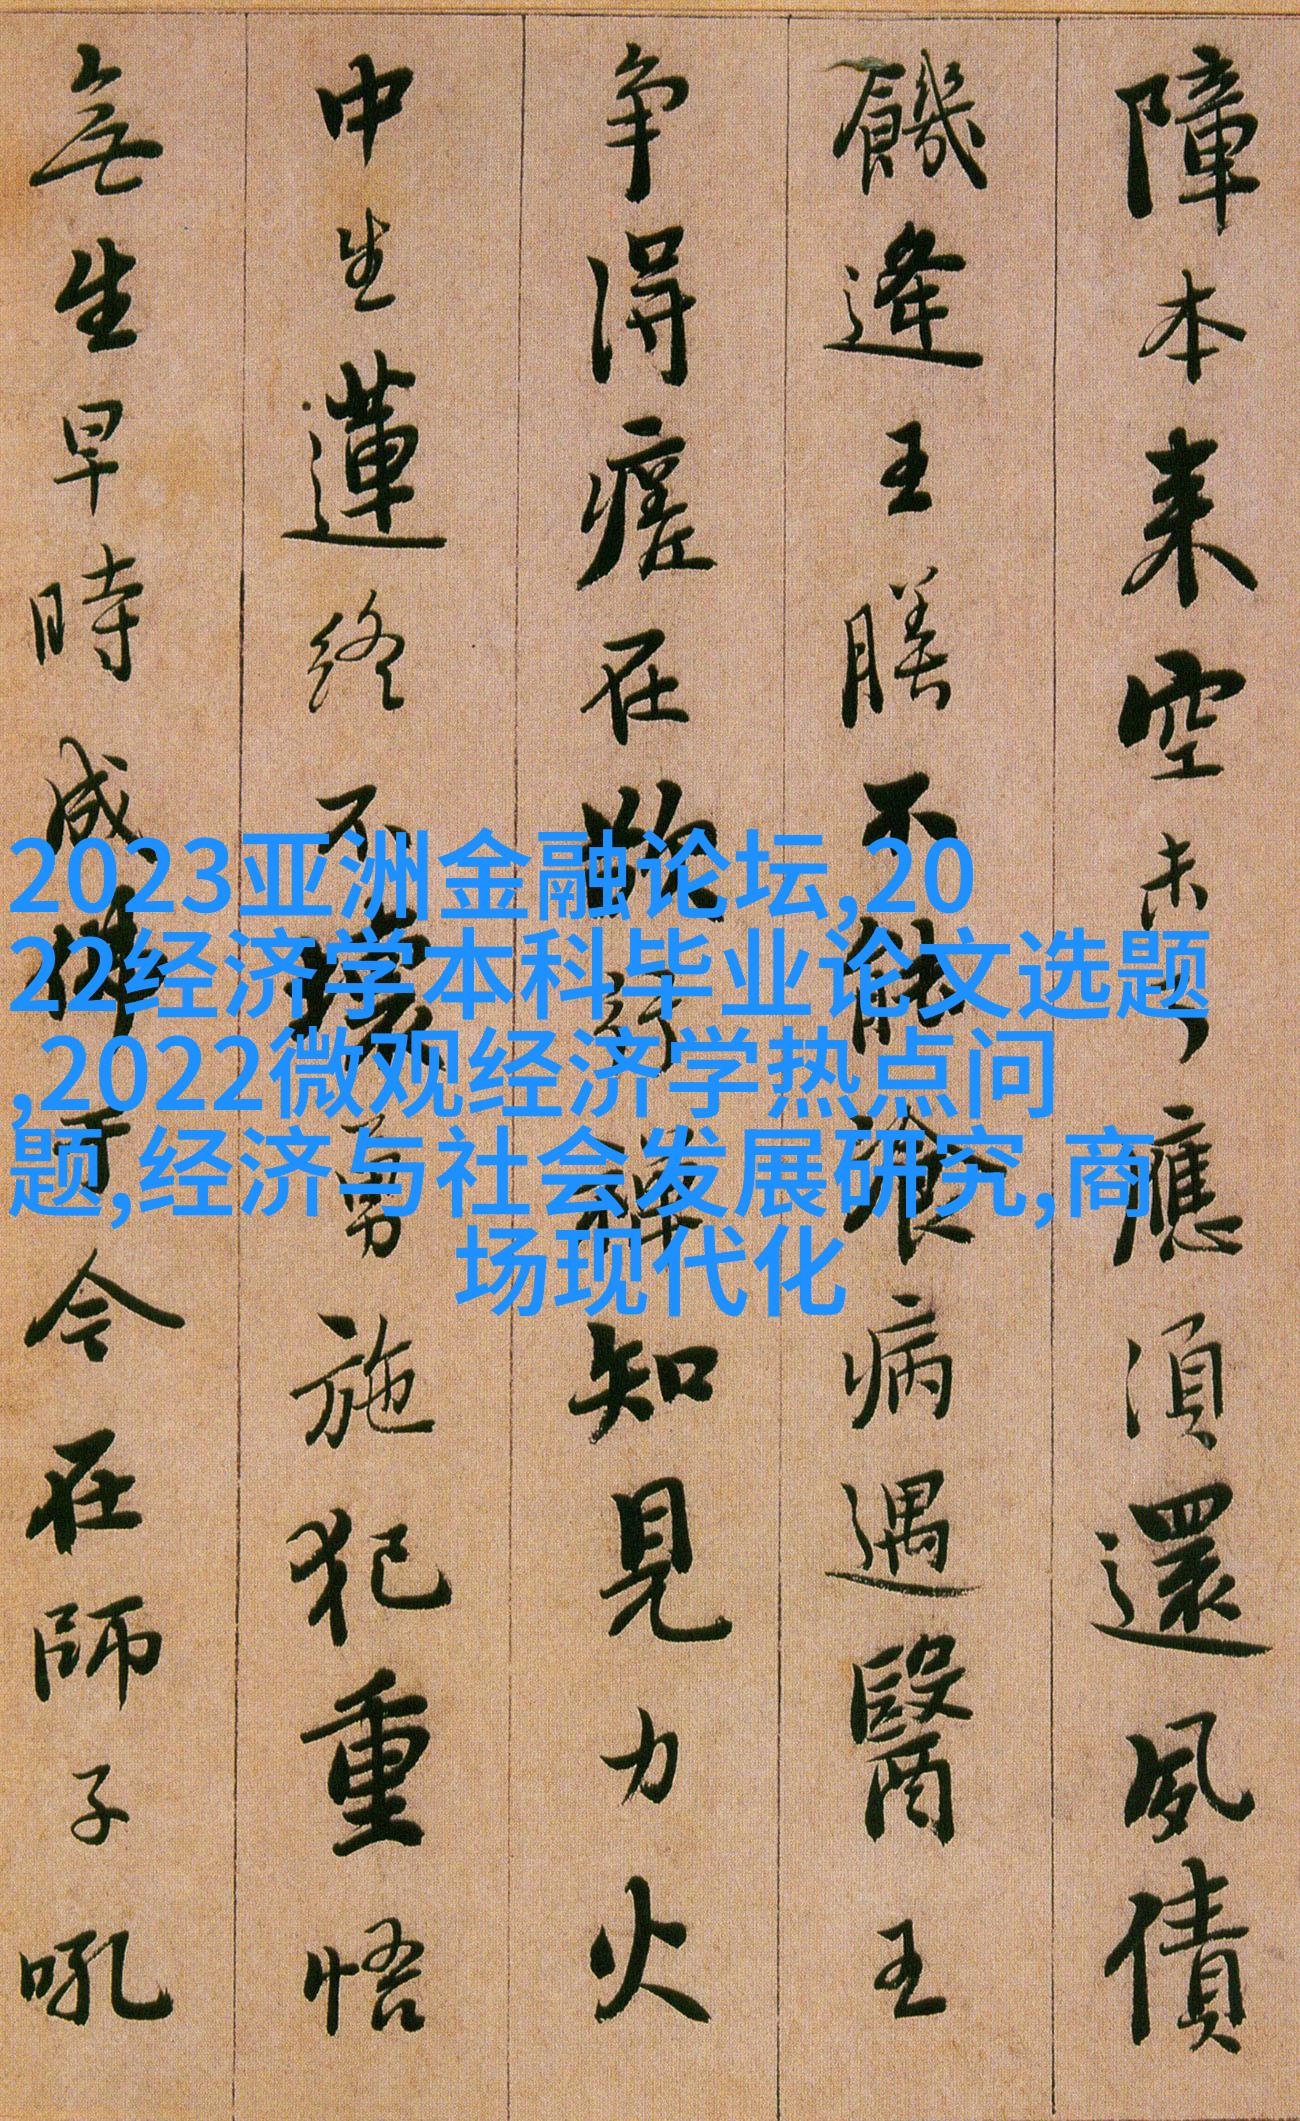 障本来空未了應湏還夙債
饑逢王膳不能飡病遇醫王
争得瘥在欲行禪知見力火
中生蓮終不壞勇施犯重悟
無生早時成佛于今在師子吼
2023亚洲金融论坛,20
22经济学本科毕业论文选题
,2022微观经济学热点问
题,经济与社会发展研究,商
场现代化